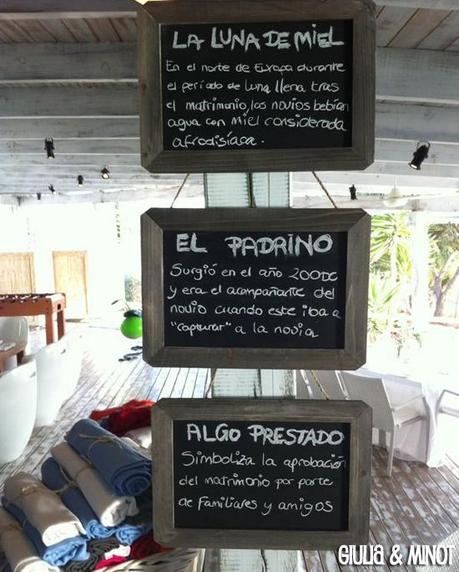 LA LUNA DE MIEL
En el norte de Europa durante
el período de luna llena tras
el matrimonio, los novios bebían
agua con miel considerada
afrodisíaca.
EL PADRINO
Surgió en el año 200DC
y era el acompañante del
novio cuando este iba a
"capturar" a la novia
ALGO PRESTADO
Simboliza la aprobación
del matrimonio por parte
de Familiares y amigos
GIULIA & MINOT